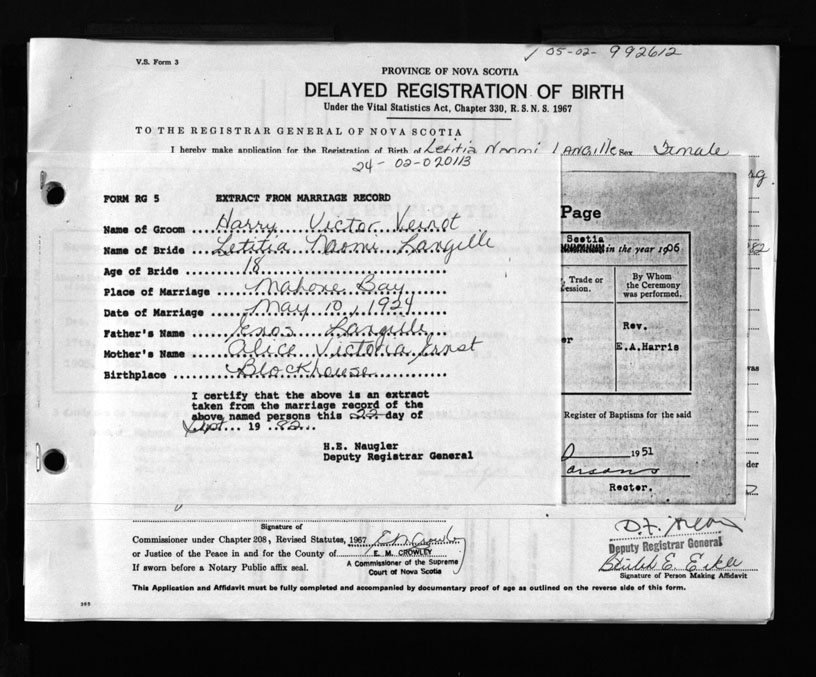 V.S. Form 3
05-02- 992612
PROVINCE OF NOVA SCOTIA
DELAYED REGISTRATION OF BIRTH
Under the Vital Statistics Act, Chapter 330, R. S. N. S. 1967
TO THE REGISTRAR GENERAL OF NOVA SCOTIA
I hereby make application for the Registration of Birth of Letitia Naomi Langille Sex Female
24- 02-020113
FORM RG 5 EXTRACT FROM MARRIAGE RECORD
Name of Groom Harry Victor Veinot
Name of Bride Letitia Naomi Langille
Age of Bride 18
Place of Marriage Mahone Bay
Date of Marriage May 10, 1924
Father's Name Enos Langille
Mother's Name Alice Victoria Ernst
Birthplace Blockhouse
I certify that the above is an extract
taken from the marriage record of the
above named persons this 22 day of
Sept 19 82
H.E. Naugler
Deputy Registrar General
Page
Scotia
in the year 1906
Trade or
By Whom
the Ceremony
was performed.
Rev.
E.A.Harris
Register of Baptisms for the said
1951
Rector.
82
was
der
Signature of
Commissioner under Chapter 208, Revised Statutes, 1967
or Justice of the Peace in and for the County of E. M. CROWLEY
If sworn before a Notary Public affix seal.
A Commissioner of the Supreme
Court of Nova Scotia
Deputy Registrar General
Signature of Person Making Affidavit
This Application and Affidavit must be fully completed and accompanied by documentary proof of age as outlined on the reverse side of this form.